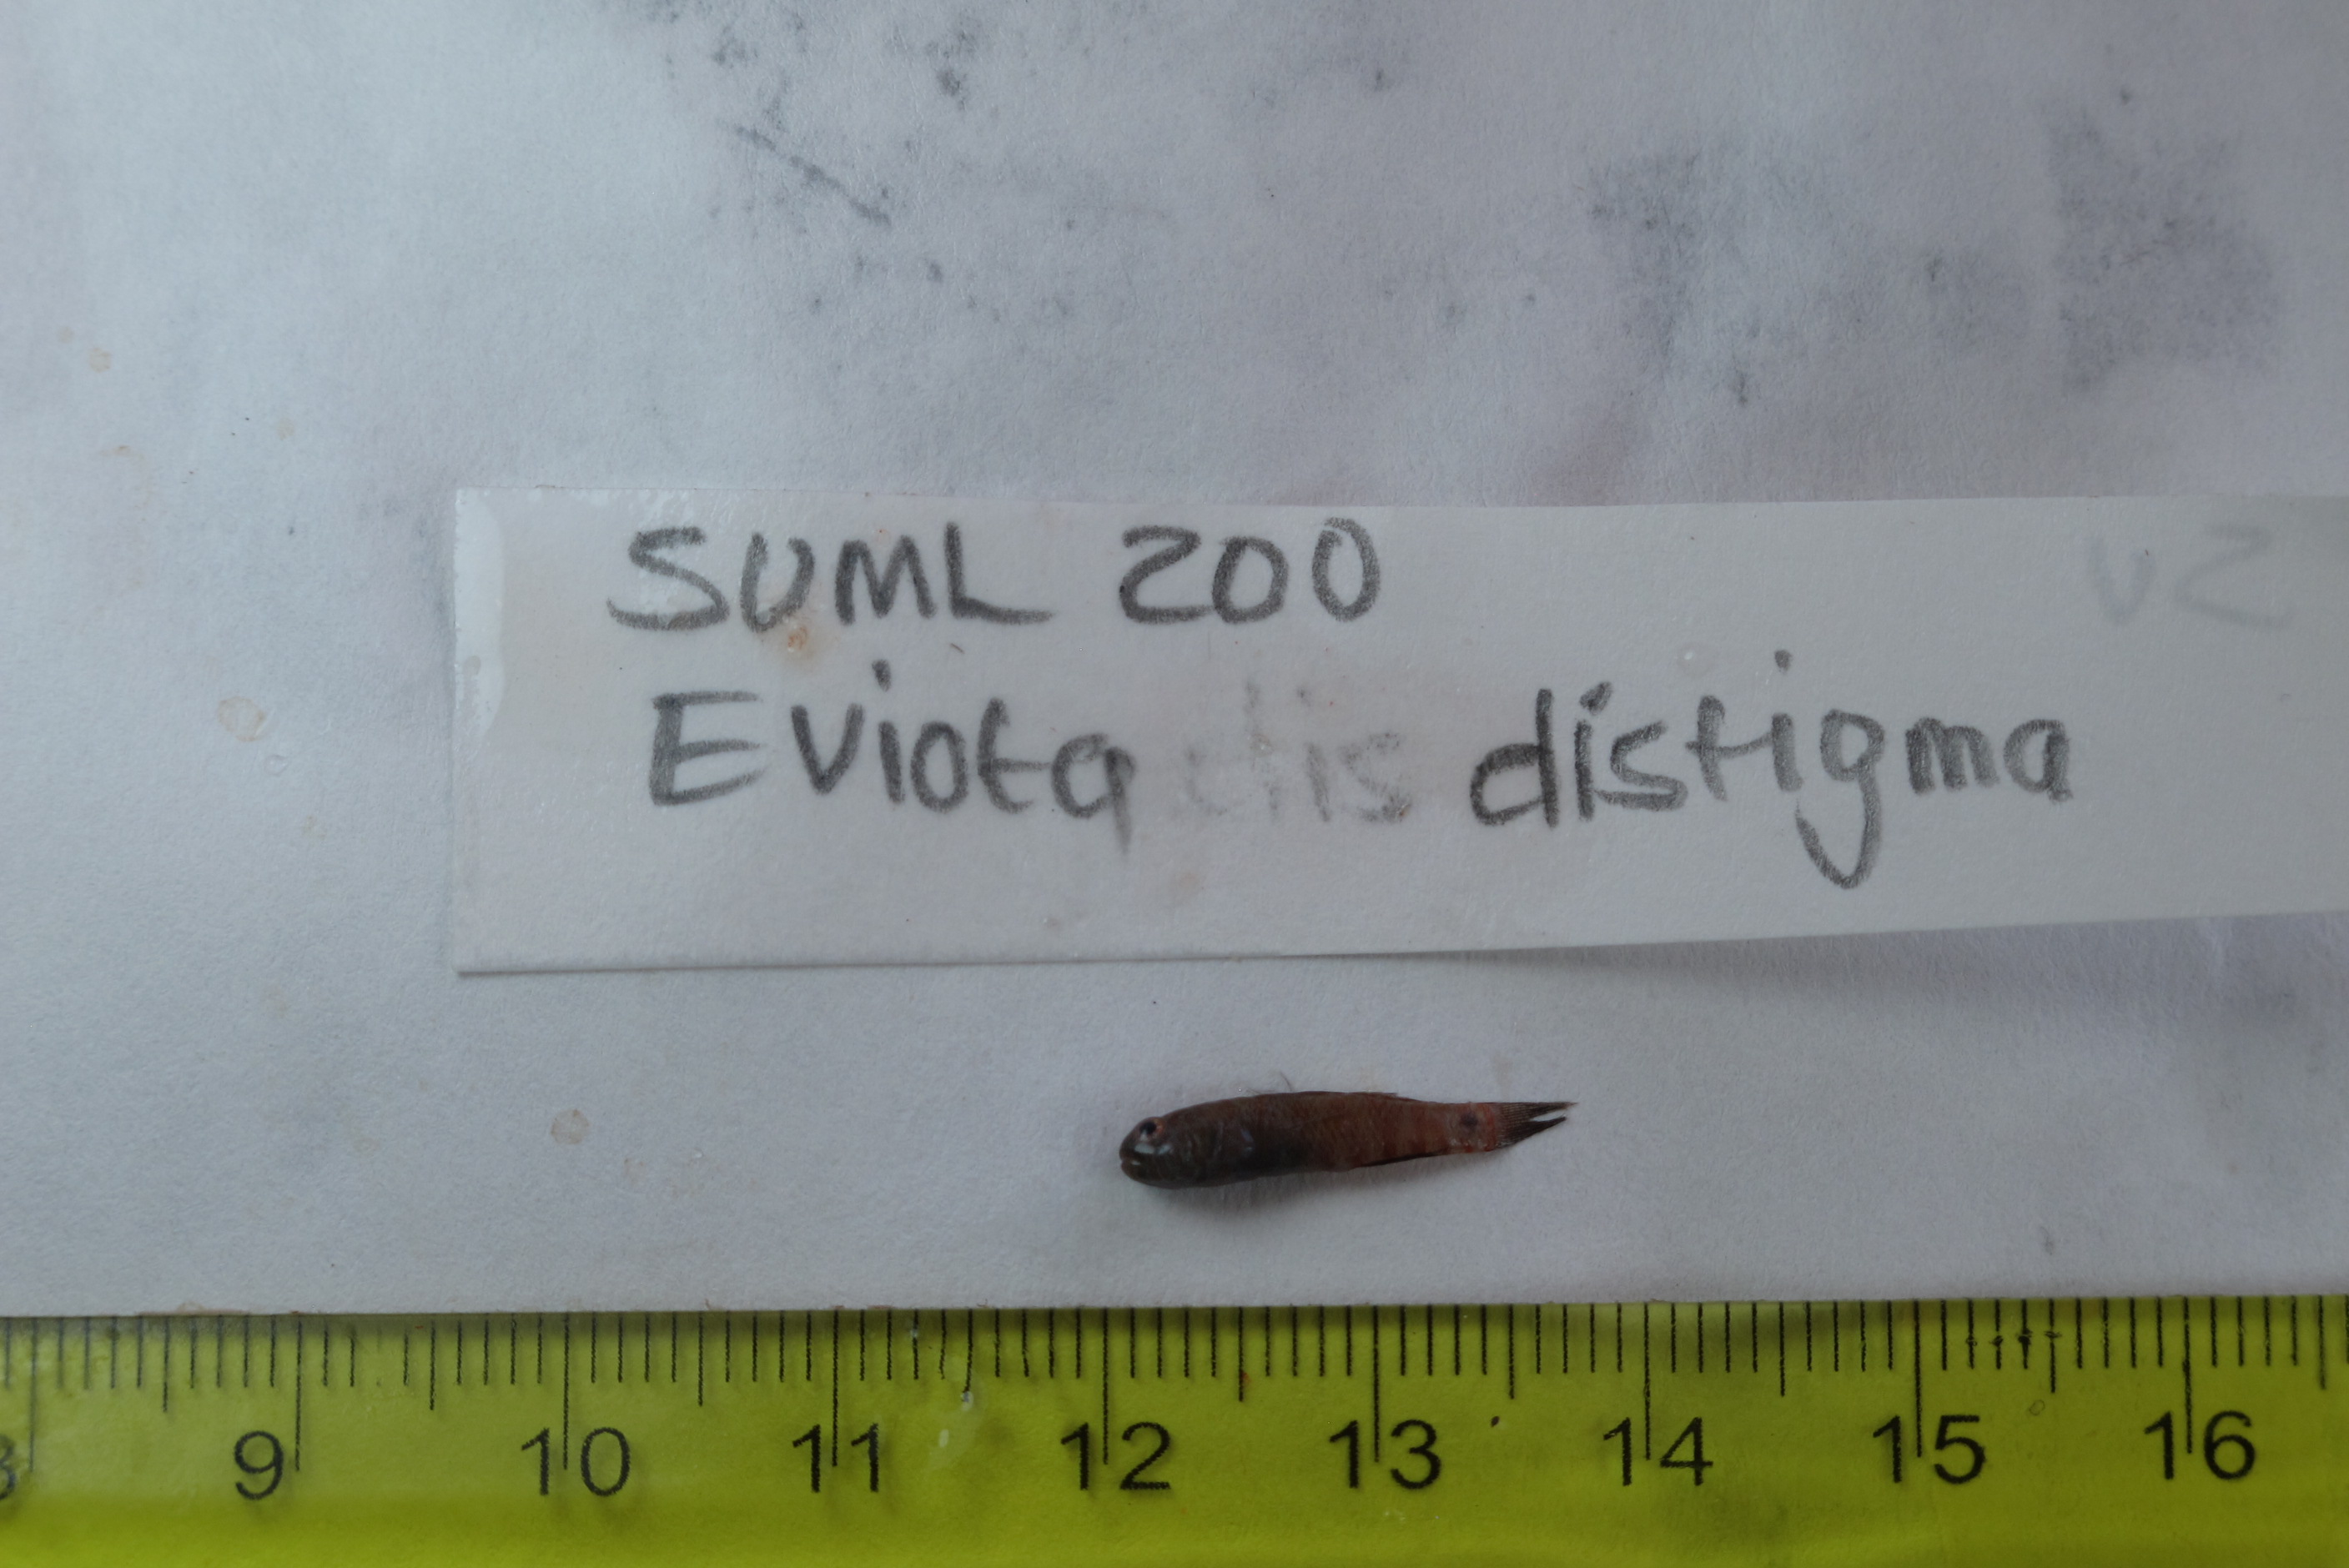 SUML 200
Eviota distigma
9 10 11 12 13 14 15 16